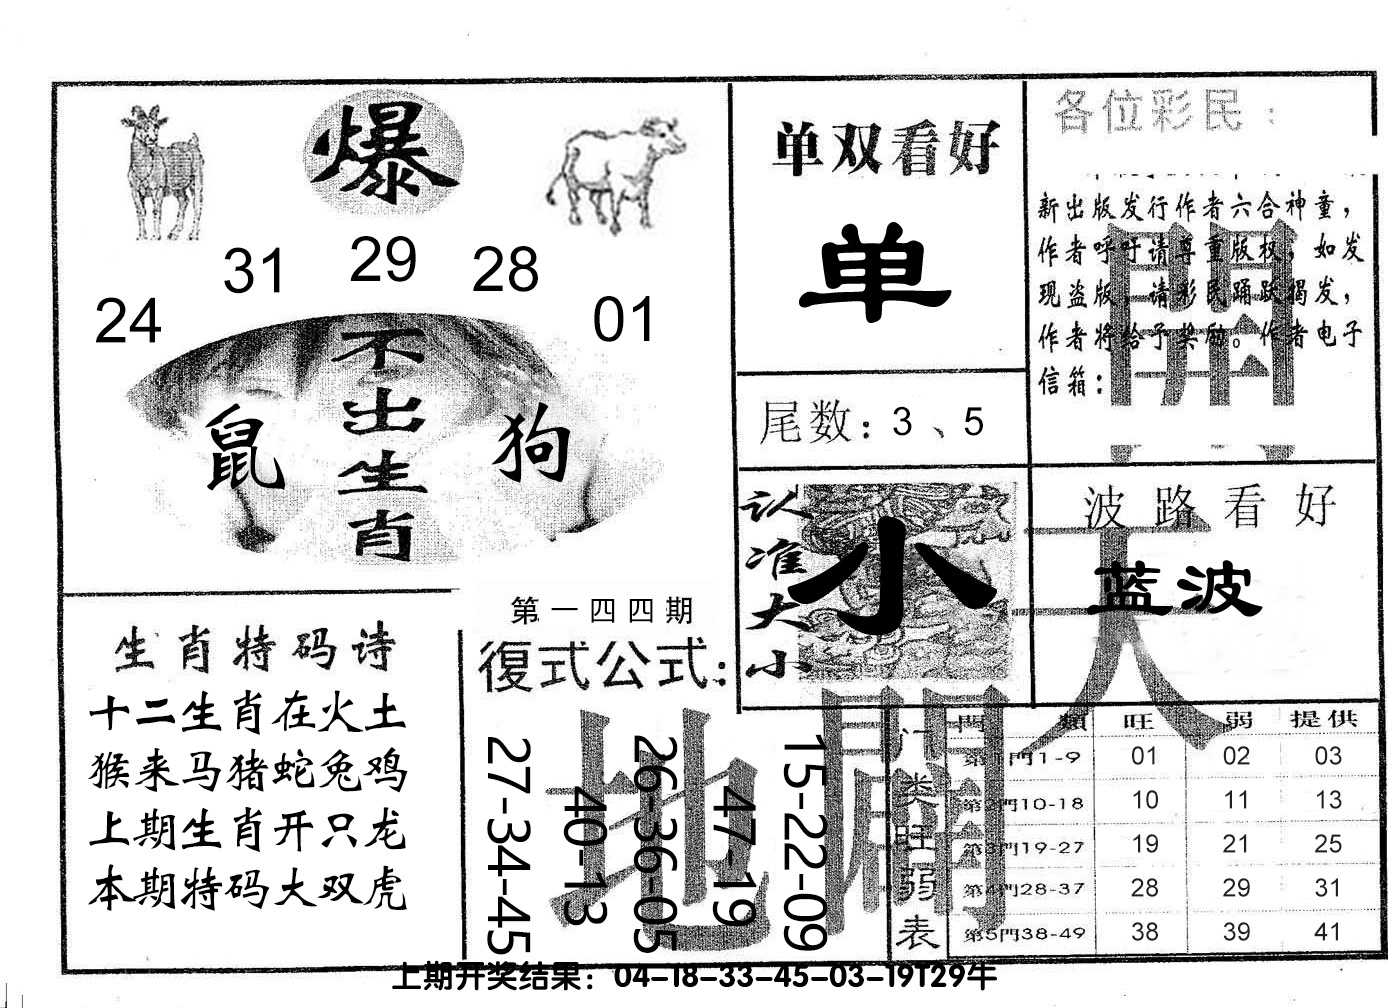 爆
24
31
29
28
01
不出生肖
鼠
狗
单双看好
单
尾数：3、5
各位彩民：
新出版发行作者六合神童，
作者呼吁请尊重版权，如发
现盗版，请彩民踊跃揭发，
作者将给予奖励。作者电子
信箱：
认准大小
小
波路看好
蓝波
天開
地闢
生肖特码诗
十二生肖在火土
猴来马猪蛇兔鸡
上期生肖开只龙
本期特码大双虎
第一四四期
復式公式：
27-34-45
40-13
26-36-05
47-19
15-22-09
门类旺弱表
門類 旺 弱 提供
第1門1-9 01 02 03
第2門10-18 10 11 13
第3門19-27 19 21 25
第4門28-37 28 29 31
第5門38-49 38 39 41
上期开奖结果：04-18-33-45-03-19T29牛